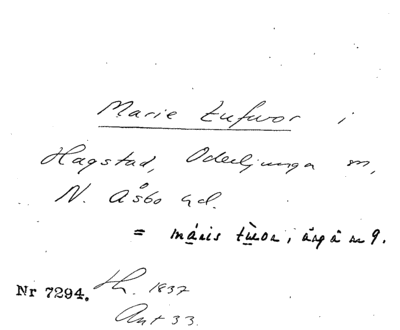 Marie tufvor i
Hagstad, Oderljunga sn,
N. Åsbo hd.
= máris
Nr 7294. Th. 1837
Ant 33.